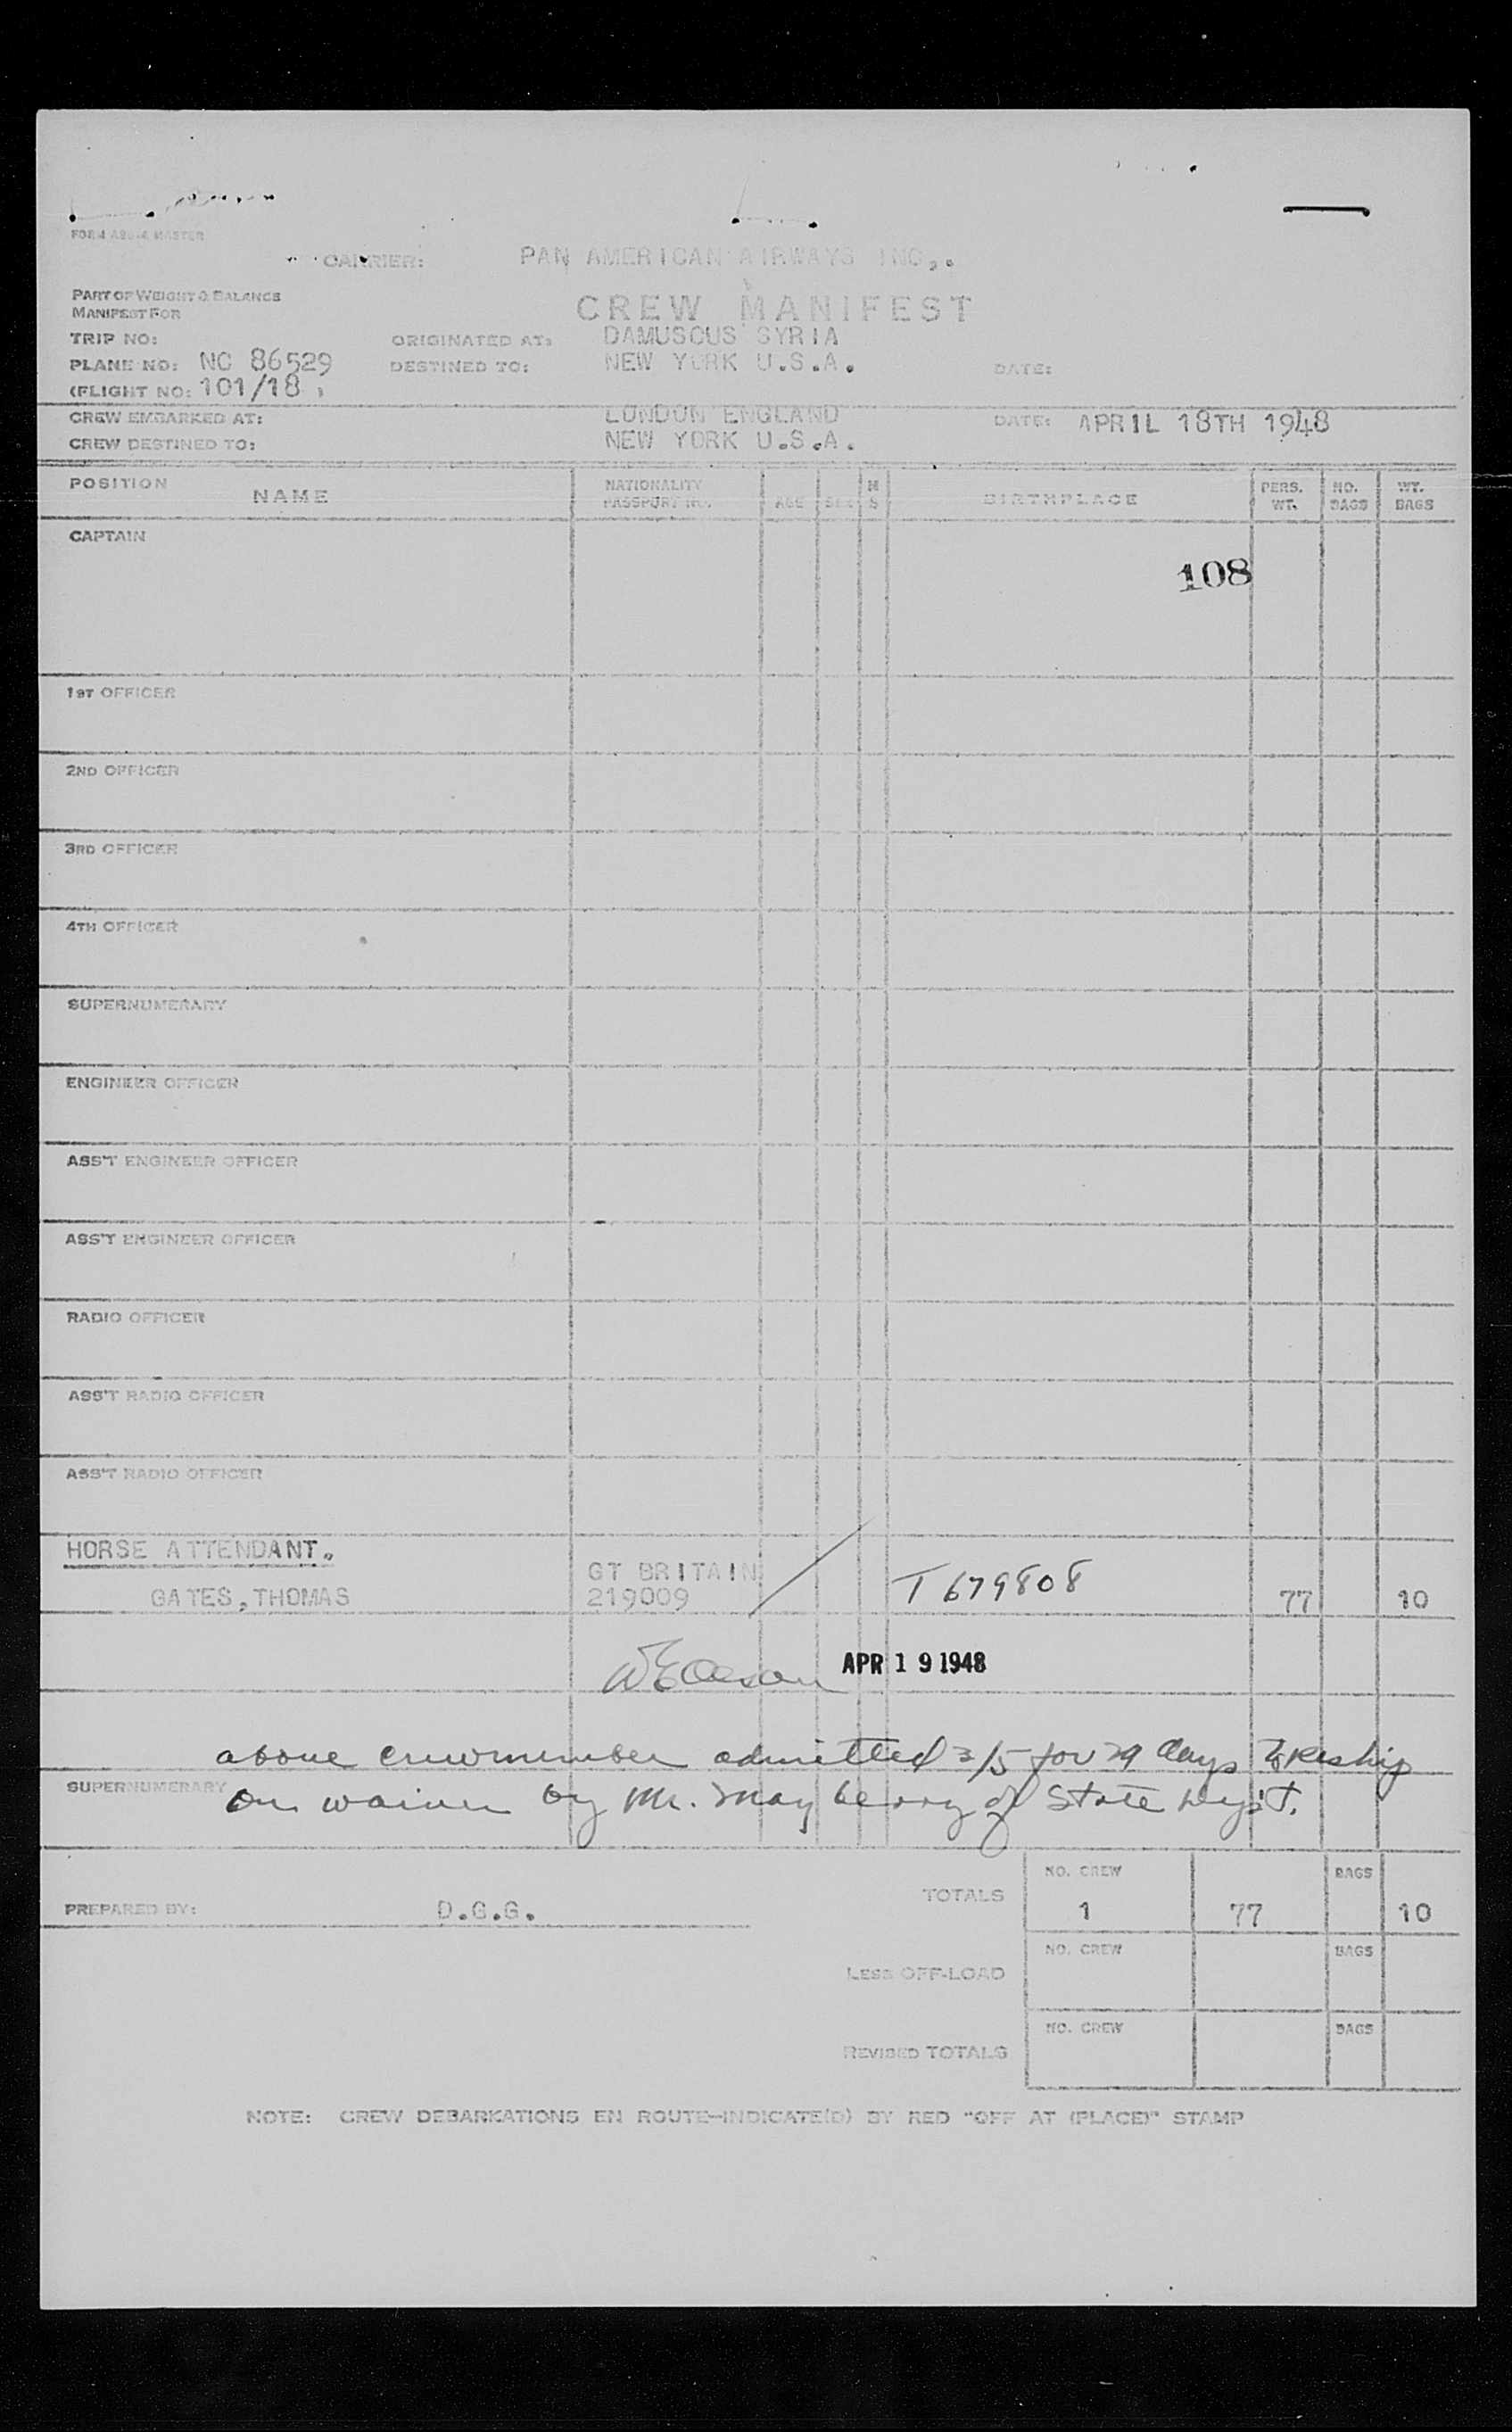 FORM MASTER
CARRIER: PAN AMERICAN AIRWAYS INC,.
PART OF WEIGHT & BALANCE
MANIFEST FOR
CREW MANIFEST
TRIP NO: ORIGINATED AT: DAMUSCUS SYRIA
PLANE NO: NC 86529 DESTINED TO: NEW YORK U.S.A. DATE:
(FLIGHT NO: 101/18 )
CREW EMBARKED AT: LONDON ENGLAND DATE: APRIL 18TH 1948
CREW DESTINED TO: NEW YORK U.S.A.
POSITION NAME NATIONALITY PASSPORT NO. AGE SEX M S BIRTHPLACE PERS. WT. NO. BAGS WT. BAGS
CAPTAIN
108
1ST OFFICER
2ND OFFICER
3RD OFFICER
4TH OFFICER
SUPERNUMERARY
ENGINEER OFFICER
ASS'T ENGINEER OFFICER
ASS'T ENGINEER OFFICER
RADIO OFFICER
ASS'T RADIO OFFICER
ASS'T RADIO OFFICER
HORSE ATTENDANT.
GT BRITAIN
GATES, THOMAS 219009 T 679808 77 10
APR 19 1948
above crewmember admitted 3/5 for 29 days to reship
SUPERNUMERARY
on waiver by Mr. Mayberry of State Dep't.
NO. CREW BAGS
TOTALS
PREPARED BY: D.G.G. 1 77 10
NO. CREW BAGS
LESS OFF-LOAD
NO. CREW BAGS
REVISED TOTALS
NOTE: CREW DEBARKATIONS EN ROUTE—INDICATE(D) BY RED "OFF AT (PLACE)" STAMP